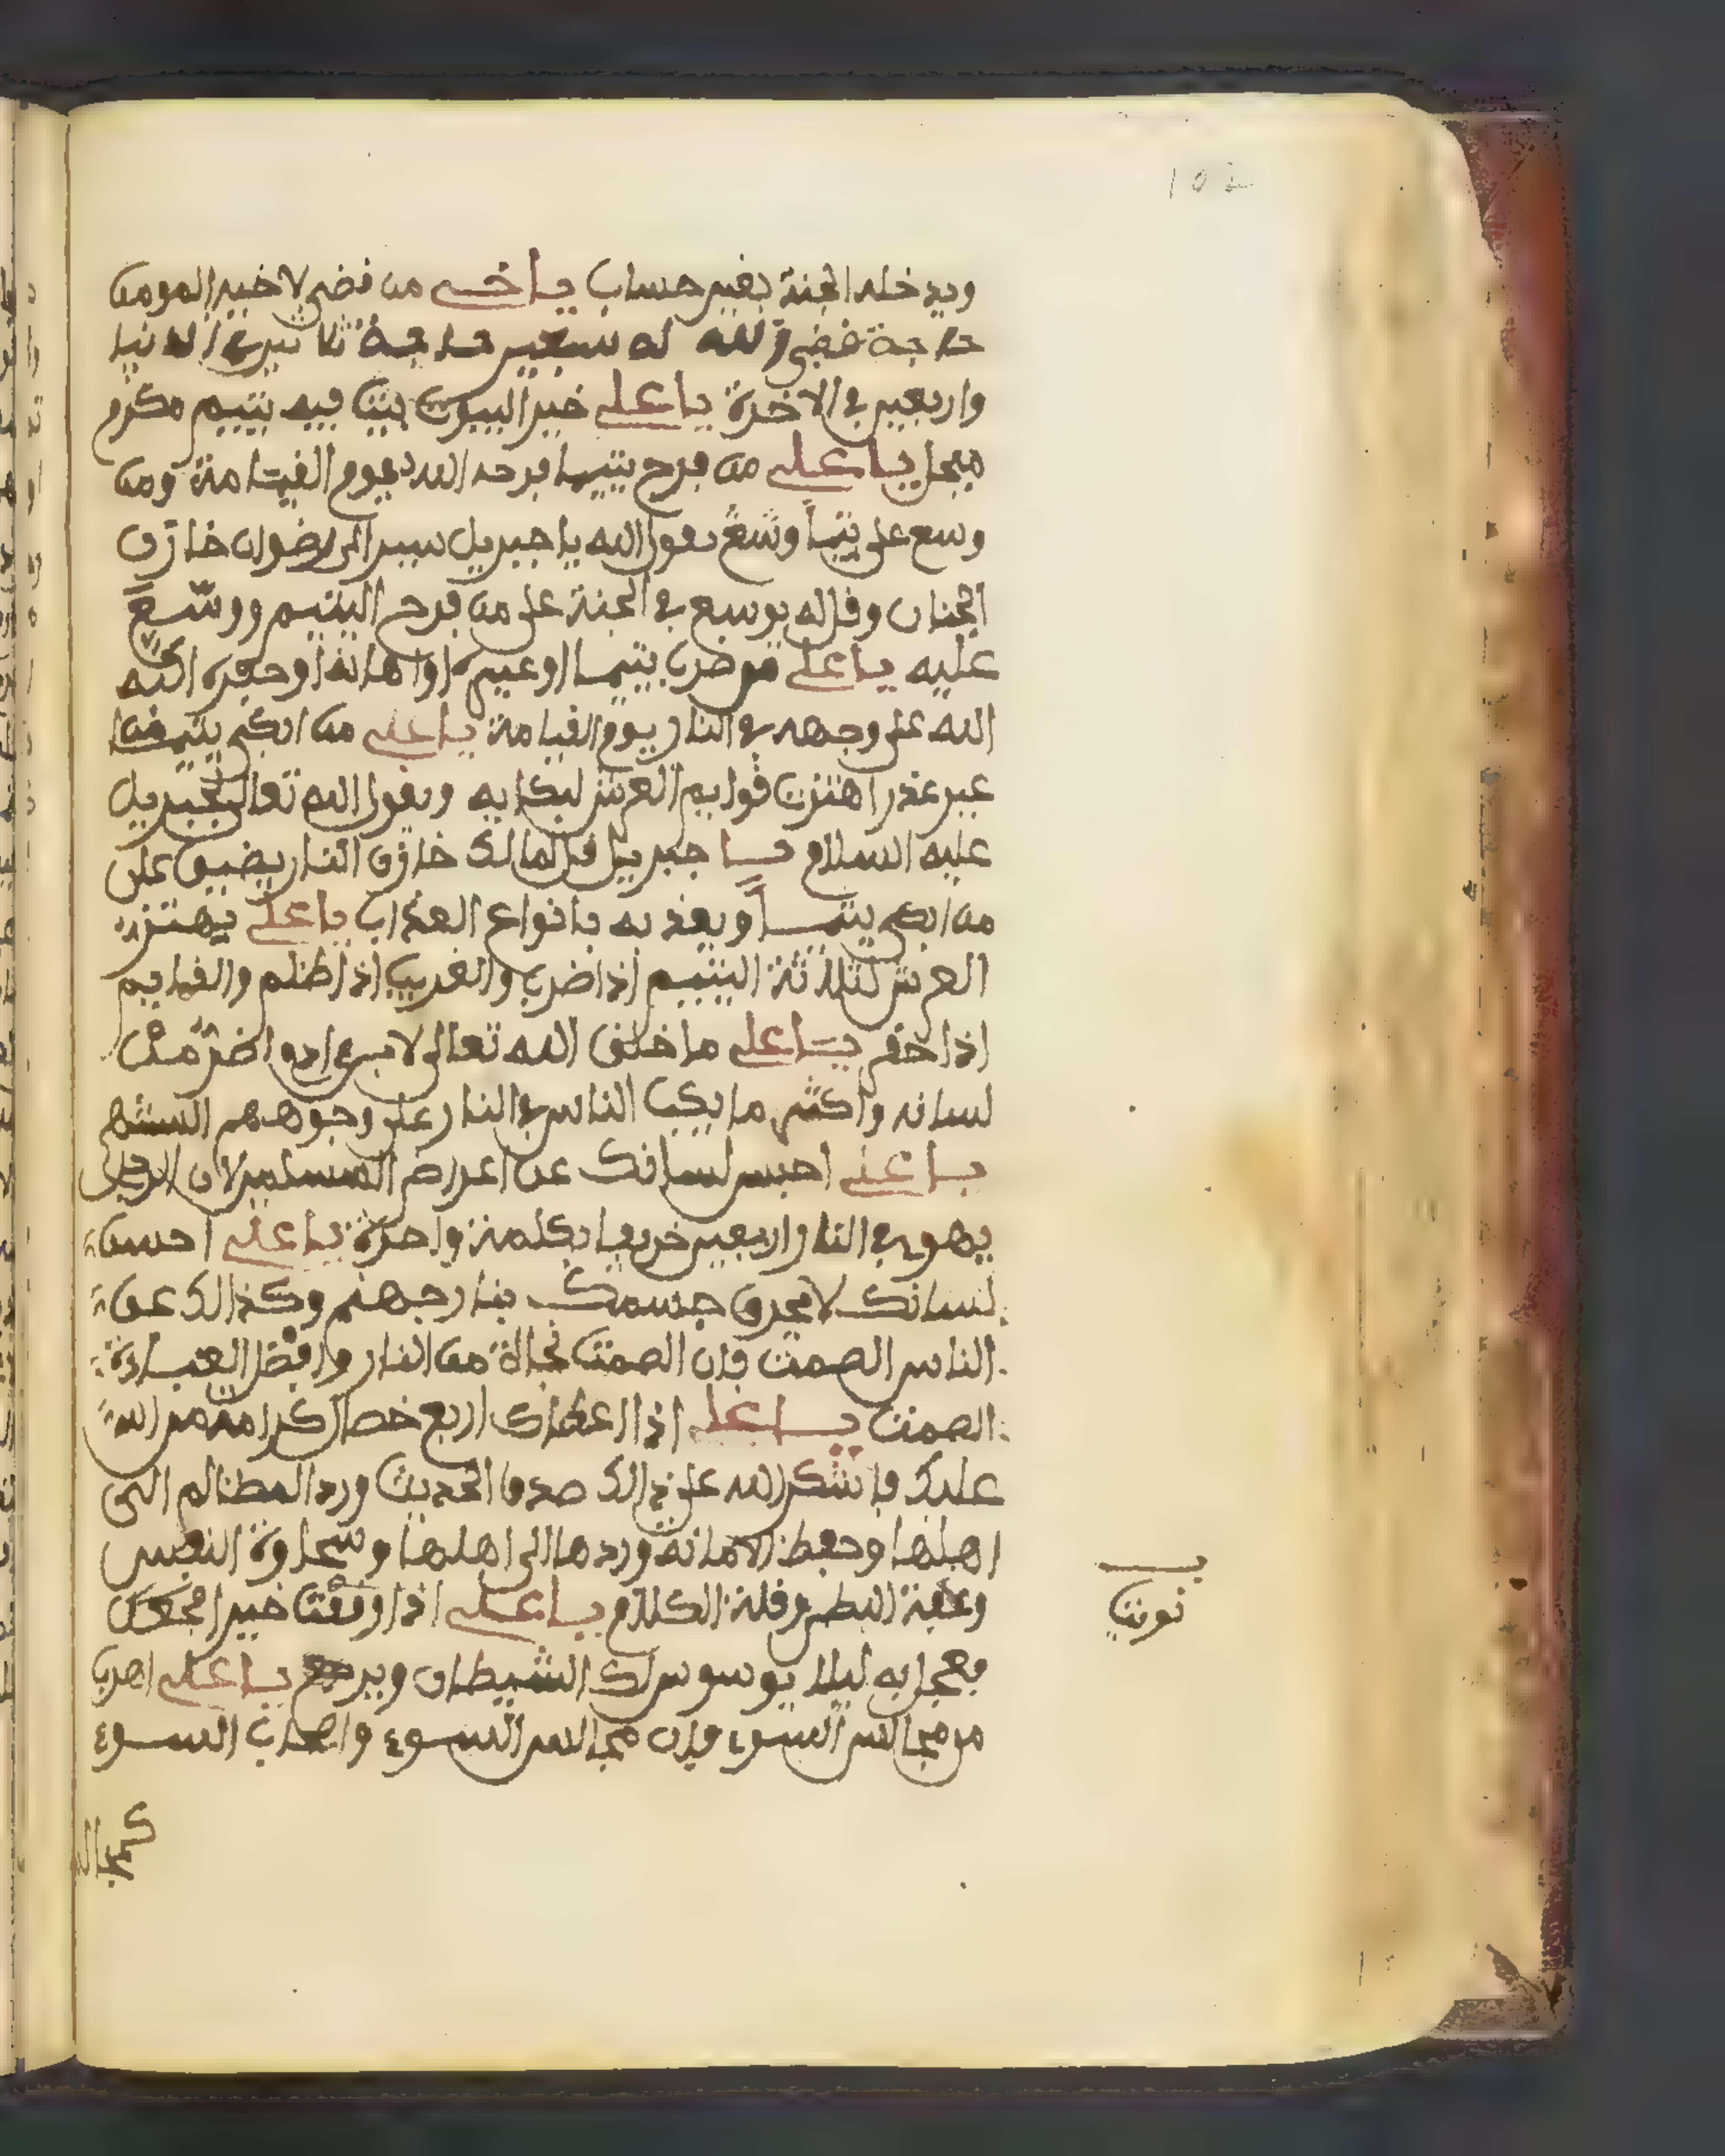 102
ويدخله الجنة بغير حساب يا اخي من قضى لاخيه المومن
حاجة قضى الله له سبعين حاجة ثلاثين في الدنيا
واربعين في الاخرة يا علي خير البيوت بيت فيه يتيم مكرم
مبجل يا علي من فرح يتيما فرحه الله يوم القيامة ومن
وسع على يتيما وسع يقول الله يا جبريل سير الى رضوان خازن
الجنان وقل له يوسع في الجنة على من فرح اليتيم ووسع
عليه يا علي من ضرب يتيما او عيره او اهانه او حقره اكبه
الله على وجهه في النار يوم القيامة يا علي من ابكى يتيما من
غير عذر اهتزت قوايم العرش لبكايه ويقول الله تعالى لجبريل
عليه السلام يا جبريل قل لمالك خازن النار يضيق على
من ابكى يتيما ويعذبه بانواع العذاب يا علي يهتز
العرش لثلاثة اليتيم اذا ضرب والغريب اذا ظلم والقايم
اذا حقر يا علي ما خلق الله تعالى لابن ادم اضر من
لسانه واكثر ما يكب الناس في النار على وجوههم السنتهم
يا علي احبس لسانك عن اعراض المسلمين لان الرجل
يهوي في النار اربعين خريفا بكلمة واحدة يا علي احسن
لسانك لا يحرق جسمك بنار جهنم وكذالك عن
الناس الصمت فان الصمت نجاة من النار وافضل العبادة
الصمت يا علي اذا اعطاك اربع خصال كرامة من الله
عليك فاشكر الله على ذالك صدق الحديث ورد المظالم الى
اهلها وحفظ الامانة وردها الى اهلها وسخاوة النفس
وعفة البطن وقلة الكلام يا علي اذا نويت خيرا
فعجل به ليلا يوسوس لك الشيطان ويرجع يا علي اهرب
من مجالس السوء فان مجالس السوء واصحاب السوء
نويت